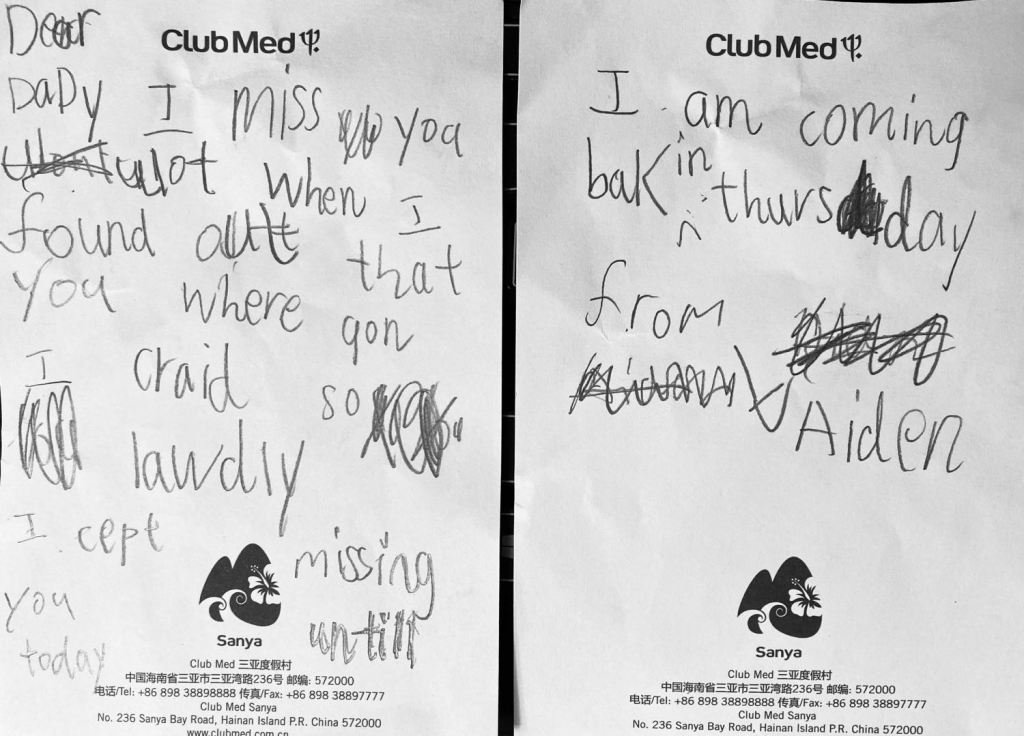 Dear
Club Med
DaDy I miss you
ulot when I
found outt that
you where gon
I craid so
lawdly
I cept missing
you untill
today
Sanya
Club Med 三亚度假村
中国海南省三亚市三亚湾路236号 邮编: 572000
电话/Tel: +86 898 38898888 传真/Fax: +86 898 38897777
Club Med Sanya
No. 236 Sanya Bay Road, Hainan Island P.R. China 572000
www.clubmed.com.cn
Club Med
I am coming
bak in thursday
from
Aiden
Sanya
Club Med 三亚度假村
中国海南省三亚市三亚湾路236号 邮编: 572000
电话/Tel: +86 898 38898888 传真/Fax: +86 898 38897777
Club Med Sanya
No. 236 Sanya Bay Road, Hainan Island P.R. China 572000